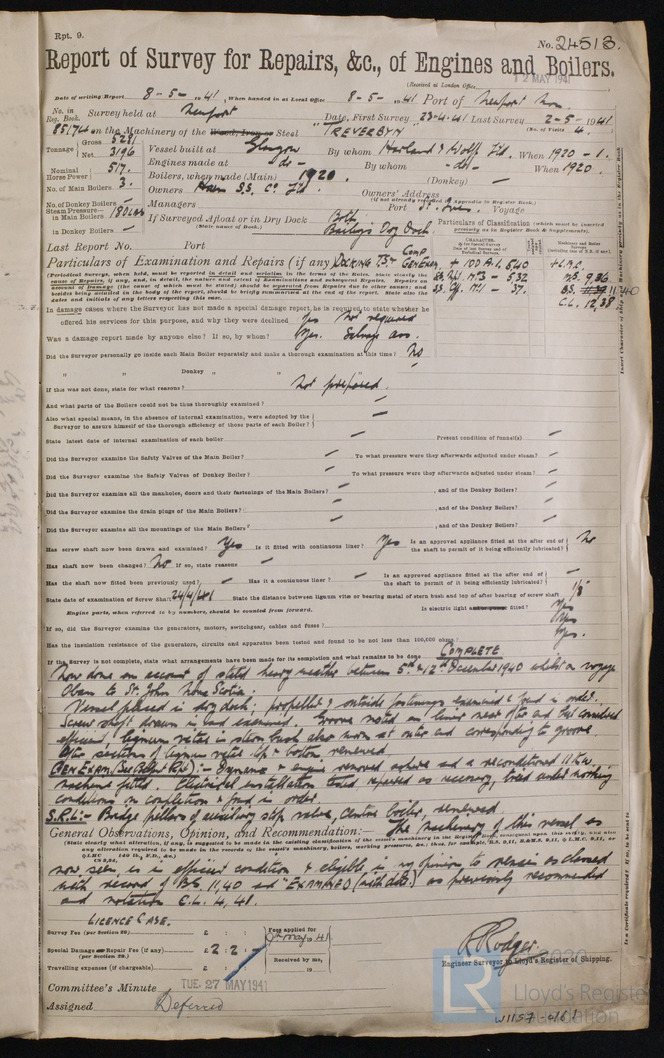 Rpt. 9.
No. 24513.
Report of Survey for Repairs, &c., of Engines and Boilers.
(Received at London Office 12 MAY 1941
Date of writing Report 8-5-1941 When handed in at Local Office 8-5-1941 Port of Newport Mon.
No. in Reg. Book. Survey held at Newport Date, First Survey 23-4-41 Last Survey 2-5-1941
85174 on the Machinery of the Wood, Iron or Steel "TREVERBYN" (No. of Visits 4.
Tonnage Gross 5281 Net 3196 Vessel built at Glasgow By whom Harland & Wolff Ltd. When 1920-1.
Engines made at -do- By whom -do- When 1920.
Nominal Horse Power 517. Boilers, when made (Main) 1920. (Donkey) —
No. of Main Boilers 3. Owners Hain S.S. Co. Ltd. Owners' Address
(if not already recorded in Appendix to Register Book.)
No. of Donkey Boilers — Managers Port St. Ives. Voyage
Steam Pressure in Main Boilers 180 lbs If Surveyed Afloat or in Dry Dock Both
in Donkey Boilers — (State name of Dock.) Bailey's Dry Dock.
Particulars of Classification (which must be inserted precisely as in Register Book & Supplements).
Last Report No. Port
Particulars of Examination and Repairs (if any) DOCKING
+ 100 A1. 5,40
+ L.M.C.
C.L. 12,38
In damage cases where the Surveyor has not made a special damage report, he is required to state whether he
offered his services for this purpose, and why they were declined Yes Not required
Was a damage report made by anyone else? If so, by whom? Yes. Salvage Ass.
Did the Surveyor personally go inside each Main Boiler separately and make a thorough examination at this time? No
" " Donkey " " "
If this was not done, state for what reasons? Not prepared.
And what parts of the Boilers could not be thus thoroughly examined? —
Also what special means, in the absence of internal examination, were adopted by the
Surveyor to assure himself of the thorough efficiency of those parts of each Boiler? —
State latest date of internal examination of each boiler — Present condition of funnel(s) —
Did the Surveyor examine the Safety Valves of the Main Boiler? — To what pressure were they afterwards adjusted under steam? —
Did the Surveyor examine the Safety Valves of Donkey Boiler? — To what pressure were they afterwards adjusted under steam? —
Did the Surveyor examine all the manholes, doors and their fastenings of the Main Boilers? — , and of the Donkey Boilers? —
Did the Surveyor examine the drain plugs of the Main Boilers? — , and of the Donkey Boilers? —
Did the Surveyor examine all the mountings of the Main Boilers? — , and of the Donkey Boilers? —
Has screw shaft now been drawn and examined? Yes Is it fitted with continuous liner? Yes Is an approved appliance fitted at the after end of the shaft to permit of it being efficiently lubricated? No
Has shaft now been changed? No If so, state reasons —
Has the shaft now fitted been previously used? — Has it a continuous liner? — Is an approved appliance fitted at the after end of the shaft to permit of it being efficiently lubricated? —
State date of examination of Screw Shaft 24/4/41 State the distance between lignum vitæ or bearing metal of stern bush and top of after bearing of screw shaft 1/8
Engine parts, when referred to by numbers, should be counted from forward. Is electric light fitted? Yes
If so, did the Surveyor examine the generators, motors, switchgear, cables and fuses? Yes
Has the insulation resistance of the generators, circuits and apparatus been tested and found to be not less than 100,000 ohms? Yes.
If the Survey is not complete, state what arrangements have been made for its completion and what remains to be done COMPLETE
Now done on account of stated heavy weather between 5th & 12th December 1940 whilst on voyage
Oban to St. John Nova Scotia:
Vessel placed in dry dock; propeller & outside fastenings examined & found in order.
Screw shaft drawn in and examined. Groove noted in liner near after end but considered
efficient; lignum vitae in stern bush also worn at outer end corresponding to groove
After sections of lignum vitae top & bottom renewed.
GEN EXAM (See Blg Rpt):- Dynamo & engine removed ashore and a reconditioned 11 K.W.
machine fitted. Electrical installation tested repaired as necessary, tried under working
conditions on completion & found in order.
S.R.L:- Bridge pillars of auxiliary stop valve, centre boiler, renewed.
General Observations, Opinion, and Recommendation:— The machinery of this vessel as
now seen, is in efficient condition & eligible in my opinion to remain as classed
with record of B.S. 11,40 and "EXAMINED (with date)" as previously recommended
and notation C.L. 4,41.
LICENCE CASE.
Survey Fee (per Section 29) £ : :
Special Damage or Repair Fee (if any) (per Section 29.) £ 2 : 2 :
Travelling expenses (if chargeable) £ : :
Fees applied for May 1941
Received by me, 19
R Rodger
Engineer Surveyor to Lloyd's Register of Shipping.
Committee's Minute TUE. 27 MAY 1941
Assigned Deferred
LR Lloyd's Register Foundation
W1157-0161